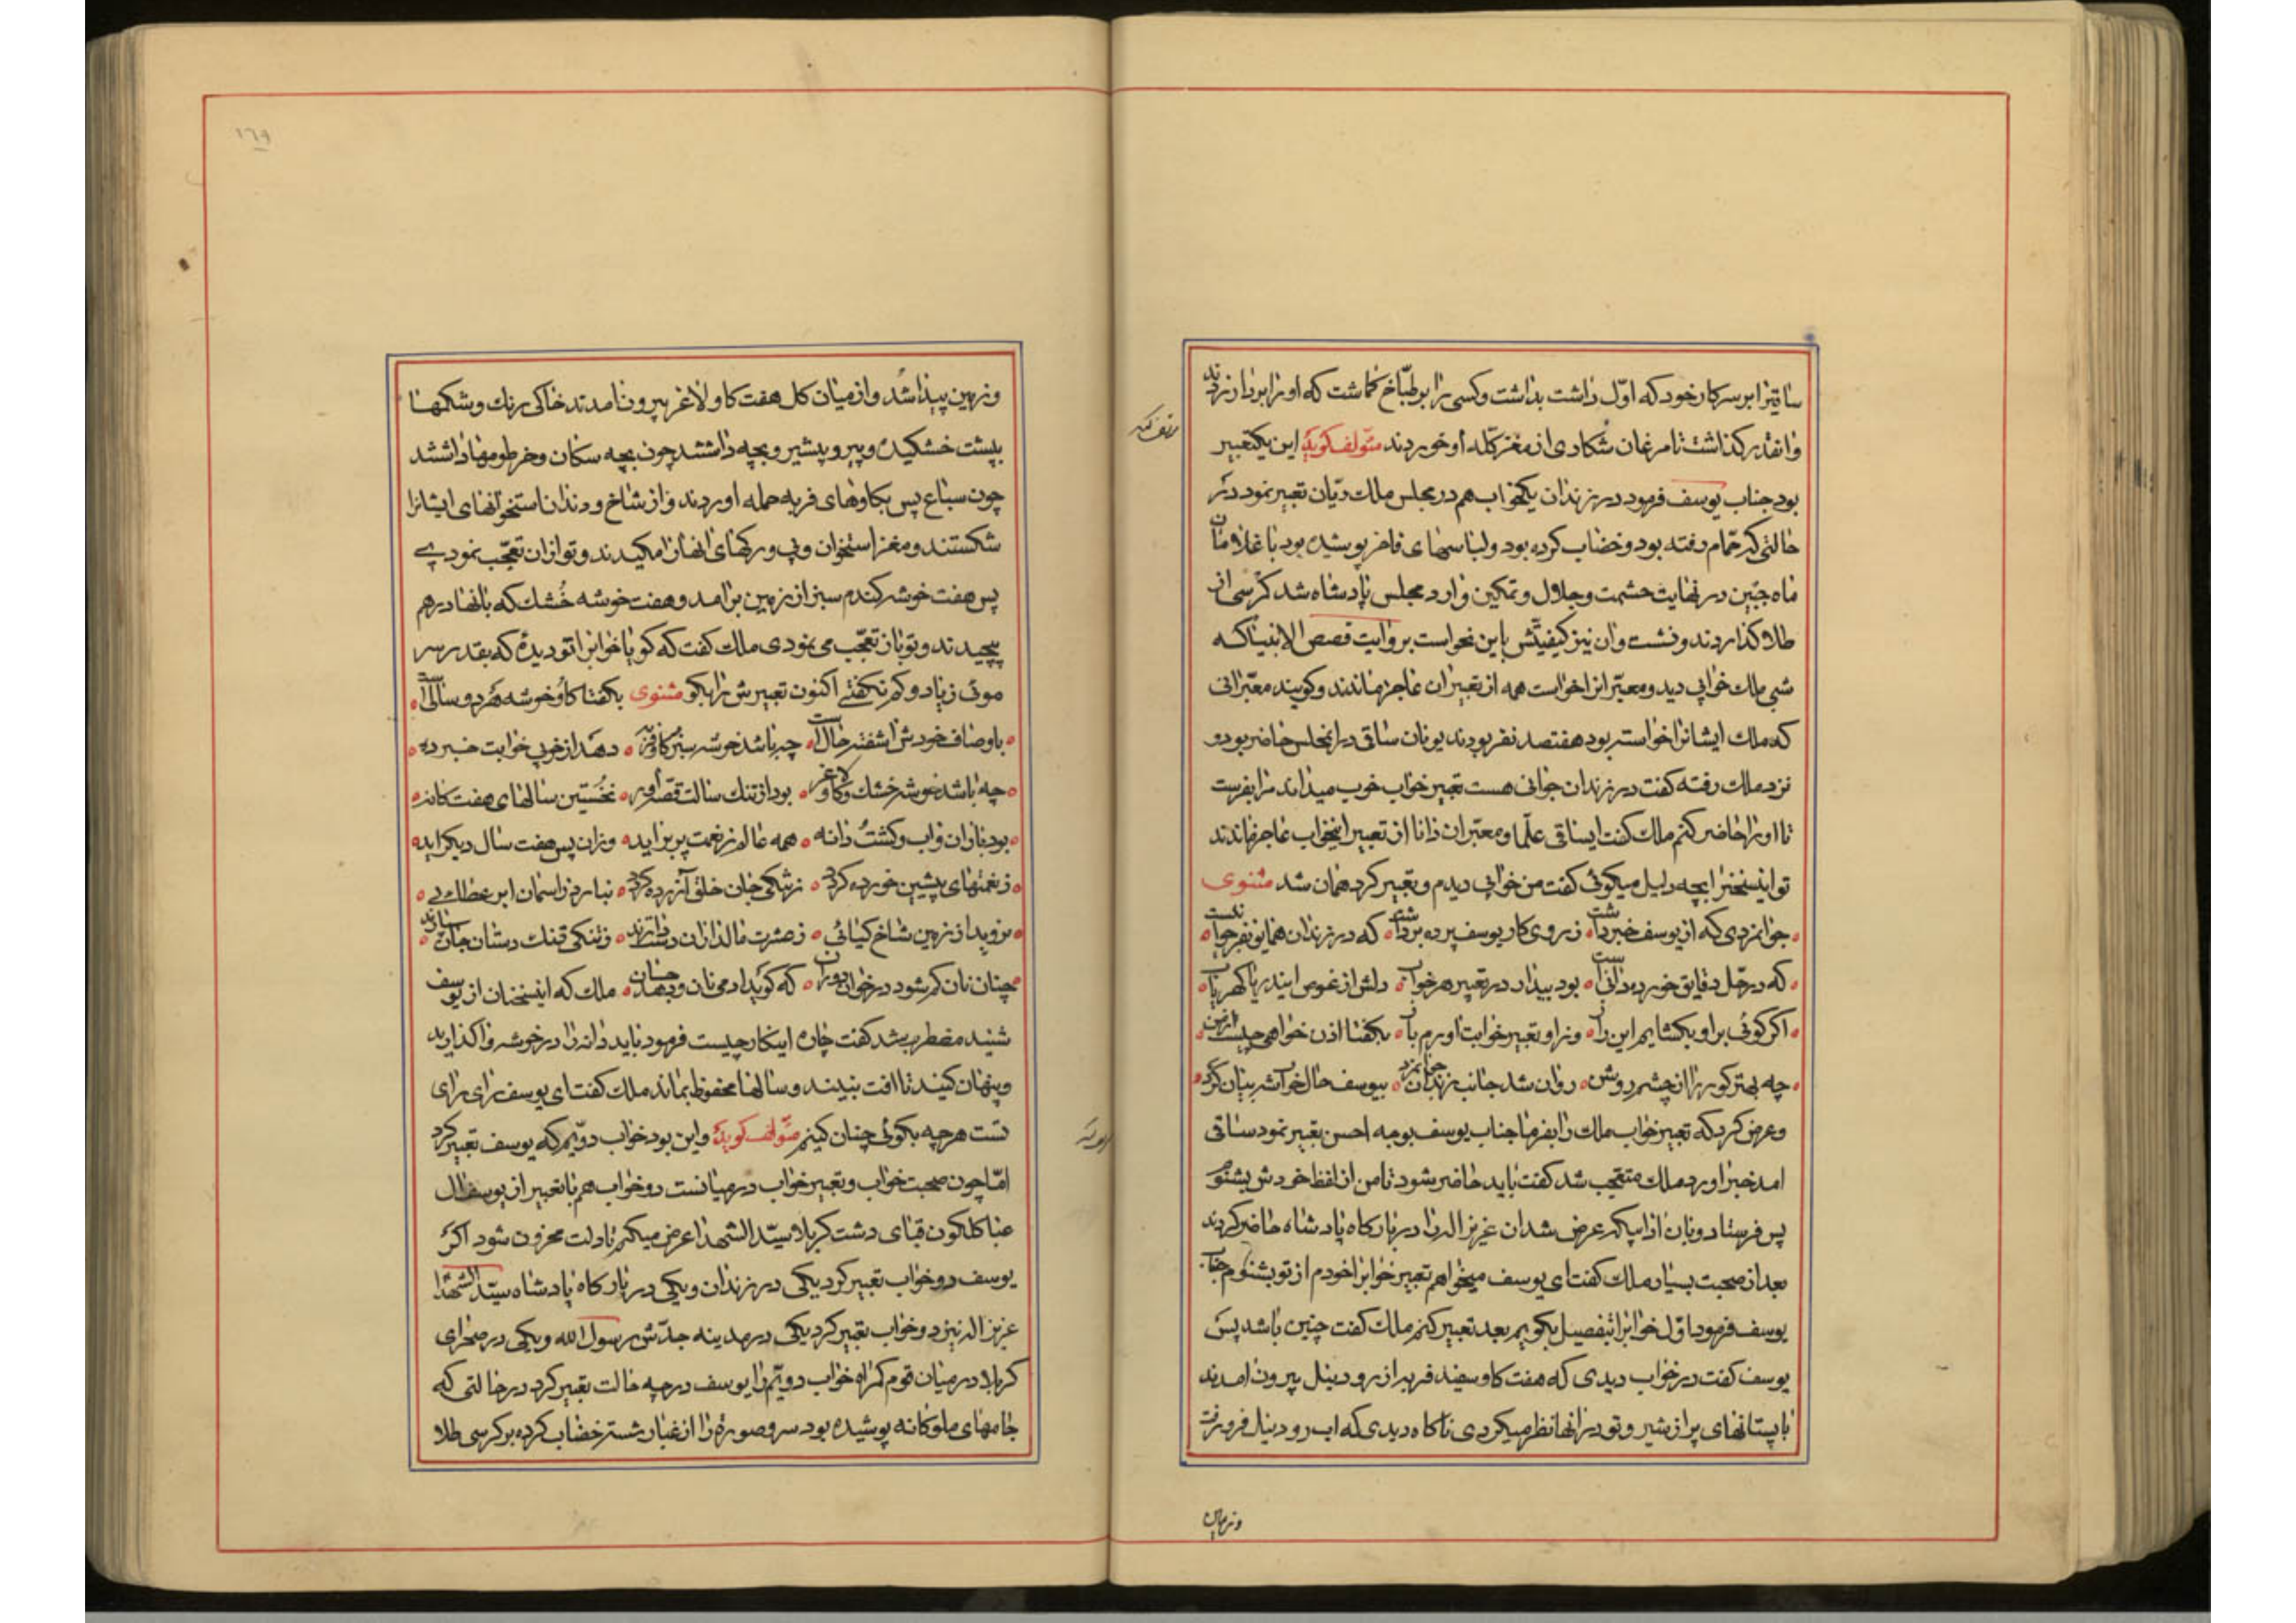 ساقیرا برسرکار خود که اوّل داشت بداشت وکسی را بر طبّاخ کماشت که اورا بردار زدند
وانقدر کذاشت تا مرغان شکاری از مغز کلّه او خوردند مؤلف کوید این یکتعبیر
بود جناب یوسف فرمود در زندان یکخواب هم در مجلس ملك ریّان تعبیر نمود در
حالتی که حمّام رفته بود و خضاب کرده بود ولباسهای فاخر پوشیده بود با غلامان
ماه جبین در نهایت حشمت وجلال و تمکین وارد مجلس پادشاه شد کرسی از
طلا کذاردند و نشست وان نیز کیفیّتش باین نحو است بروایت قصص الانبیا که
شبی ملك خوابی دید و معبّرانرا خواست همه از تعبیر ان عاجز ماندند وکویند معبّرانی
که ملك ایشانرا خواسته بود هفتصد نفر بودند یونان ساقی در انمجلس حاضر بود و
نزد ملك رفته کفت در زندان جوانی هست تعبیر خواب خوب میداند مرا بفرست
تا اورا حاضر کنم ملك کفت ایساقی علما ومعبّران دانا از تعبیر اینخواب عاجز ماندند
تو اینسخنرا بچه دلیل میکوئی کفت من خوابی دیدم و تعبیر کرد همان شد مثنوی
جوانمردی که از یوسف خبر داشت زروی کار یوسف پرده برداشت که در زندان همایونفر جوانیست
که در حلّ دقایق خورده دانیست بود بیدار در تعبیر هر خواب دلش از غوص ایندریا کهریاب
اکر کوئی براو بکشایم این راز وزاو تعبیر خوابت اورم باز بکفتا اذن خواهی چیست از من
چه بهتر کور را از چشم روشن روان شد جانب زندان جوانمرد بیوسف حال خواب شه بیان کرد
وعرض کرد که تعبیر خواب ملك را بفرما جناب یوسف بوجه احسن تعبیر نمود ساقی
امد خبر اورد ملك متعجب شد کفت باید حاضر شود تا من از لفظ خودش بشنوم
پس فرستاد و بان عرض شد ان عزیز الله را در بارکاه پادشاه حاضر کردند
بعد از صحبت بسیار ملك کفت ای یوسف میخواهم تعبیر خوابرا خودم از تو بشنوم جناب
یوسف فرمود اوّل خوابرا بتفصیل بکویم بعد تعبیر کنم ملك کفت چنین باشد پس
یوسف کفت در خواب دیدی که هفت کاو سفید فربه از رود نیل بیرون امدند
با پستانهای پر از شیر و تو در انها نظر میکردی ناکاه دیدی که اب رود نیل فرورفت
وزمین پیدا شد واز میان کل هفت کاو لاغر بیرون امدند خاکی رنك وشکمها
بپشت خشکیده وپیر و بیشیر وبچه داشتند چون بچه سکان وخرطومها داشتند
چون سباع پس بکاوهای فربه حمله اوردند و از شاخ و دندان استخوانهای ایشانرا
شکستند ومغز استخوان وپی ورکهای انهارا مکیدند وتو ازان تعجّب نمودی
پس هفت خوشه کندم سبز از زمین برامد و هفت خوشه خُشك که بانها درهم
پیچیدند و تو باز تعجّب می نمودی ملك کفت که کویا خوابرا تو دیدهٔ که بقدر سر
موئی زیاد وکم نکفتی اکنون تعبیرش را بکو مثنوی بکفتا کاو خوشه هر دو سالست
باوصاف خودش اشفته حالست چه باشد خوشه سبز کاو فربه دهد از خوبی خوابت خبر ده
چه باشد خوشه خشك وکاو لاغر بود از تنك سالت قصّه اور نخستین سالهای هفت کانه
بود باران واب وکشت دانه همه عالم ز نعمت پر بر اید وزان پس هفت سال دیکر اید
زنعمتهای پیشین خورده کردد زتنکی جان خلق آزرده کردد نبارد ز اسمان ابر عطائی
نروید از زمین شاخ کیائی زعشرت مالداران دست دارند زتنکی تنك دستان جان سپارند
چنان نان کم شود در خوان دوران که کوید ادمی نان و دهد جان ملك که اینسخنان از یوسف
شنید مضطرب شد کفت چاره اینکار چیست فرمود باید دانه را در خوشه واکذارید
وپنهان کنید تا افت نبیند وسالها محفوظ بماند ملك کفت ای یوسف رای رای
تست هرچه بکوئی چنان کنیم مؤلف کوید واین بود خواب دویّم که یوسف تعبیر کرد
امّا چون صحبت خواب و تعبیر خواب در میانست دو خواب هم با تعبیر از یوسف ال
عبا کلکون قبای دشت کربلا سیّد الشهدا عرض میکنم تا دلت محزون شود اکر
یوسف دو خواب تعبیر کرد یکی در زندان و یکی در بارکاه پادشاه سیّد الشهدا
عزیز الله نیز دو خواب تعبیر کرد یکی در مدینه جدّش رسول الله ویکی در صحرای
کربلا در میان قوم کمراه خواب دویّم را یوسف درچه حالت تعبیر کرد در حالتی که
جامهای ملوکانه پوشیده بود سر و صورة را از غبار شسته خضاب کرده بر کرسی طلا
وزمین
١٦٩